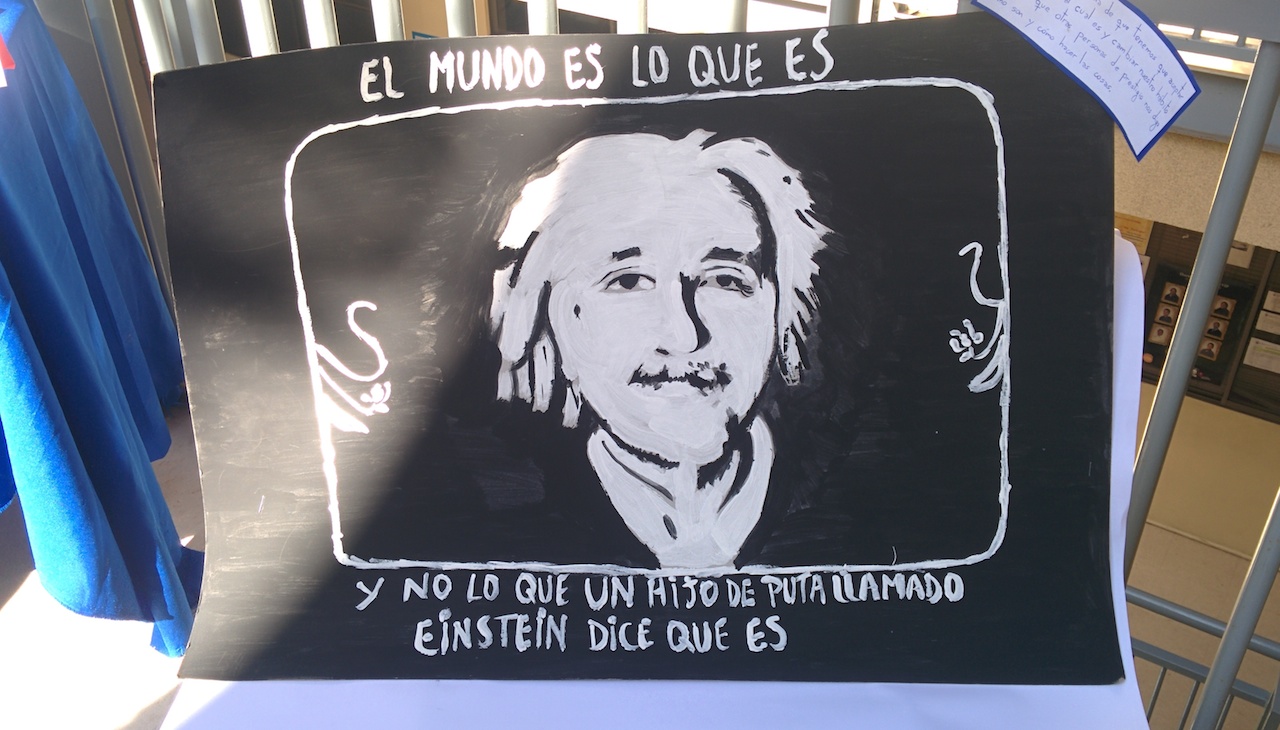 EL MUNDO ES LO QUE ES
Y NO LO QUE UN HIJO DE PUTA LLAMADO
EINSTEIN DICE QUE ES
de que tenemos que
cual es y cambiar nuestro
que otra persona de prestigio nos diga
son y como hacer las cosas